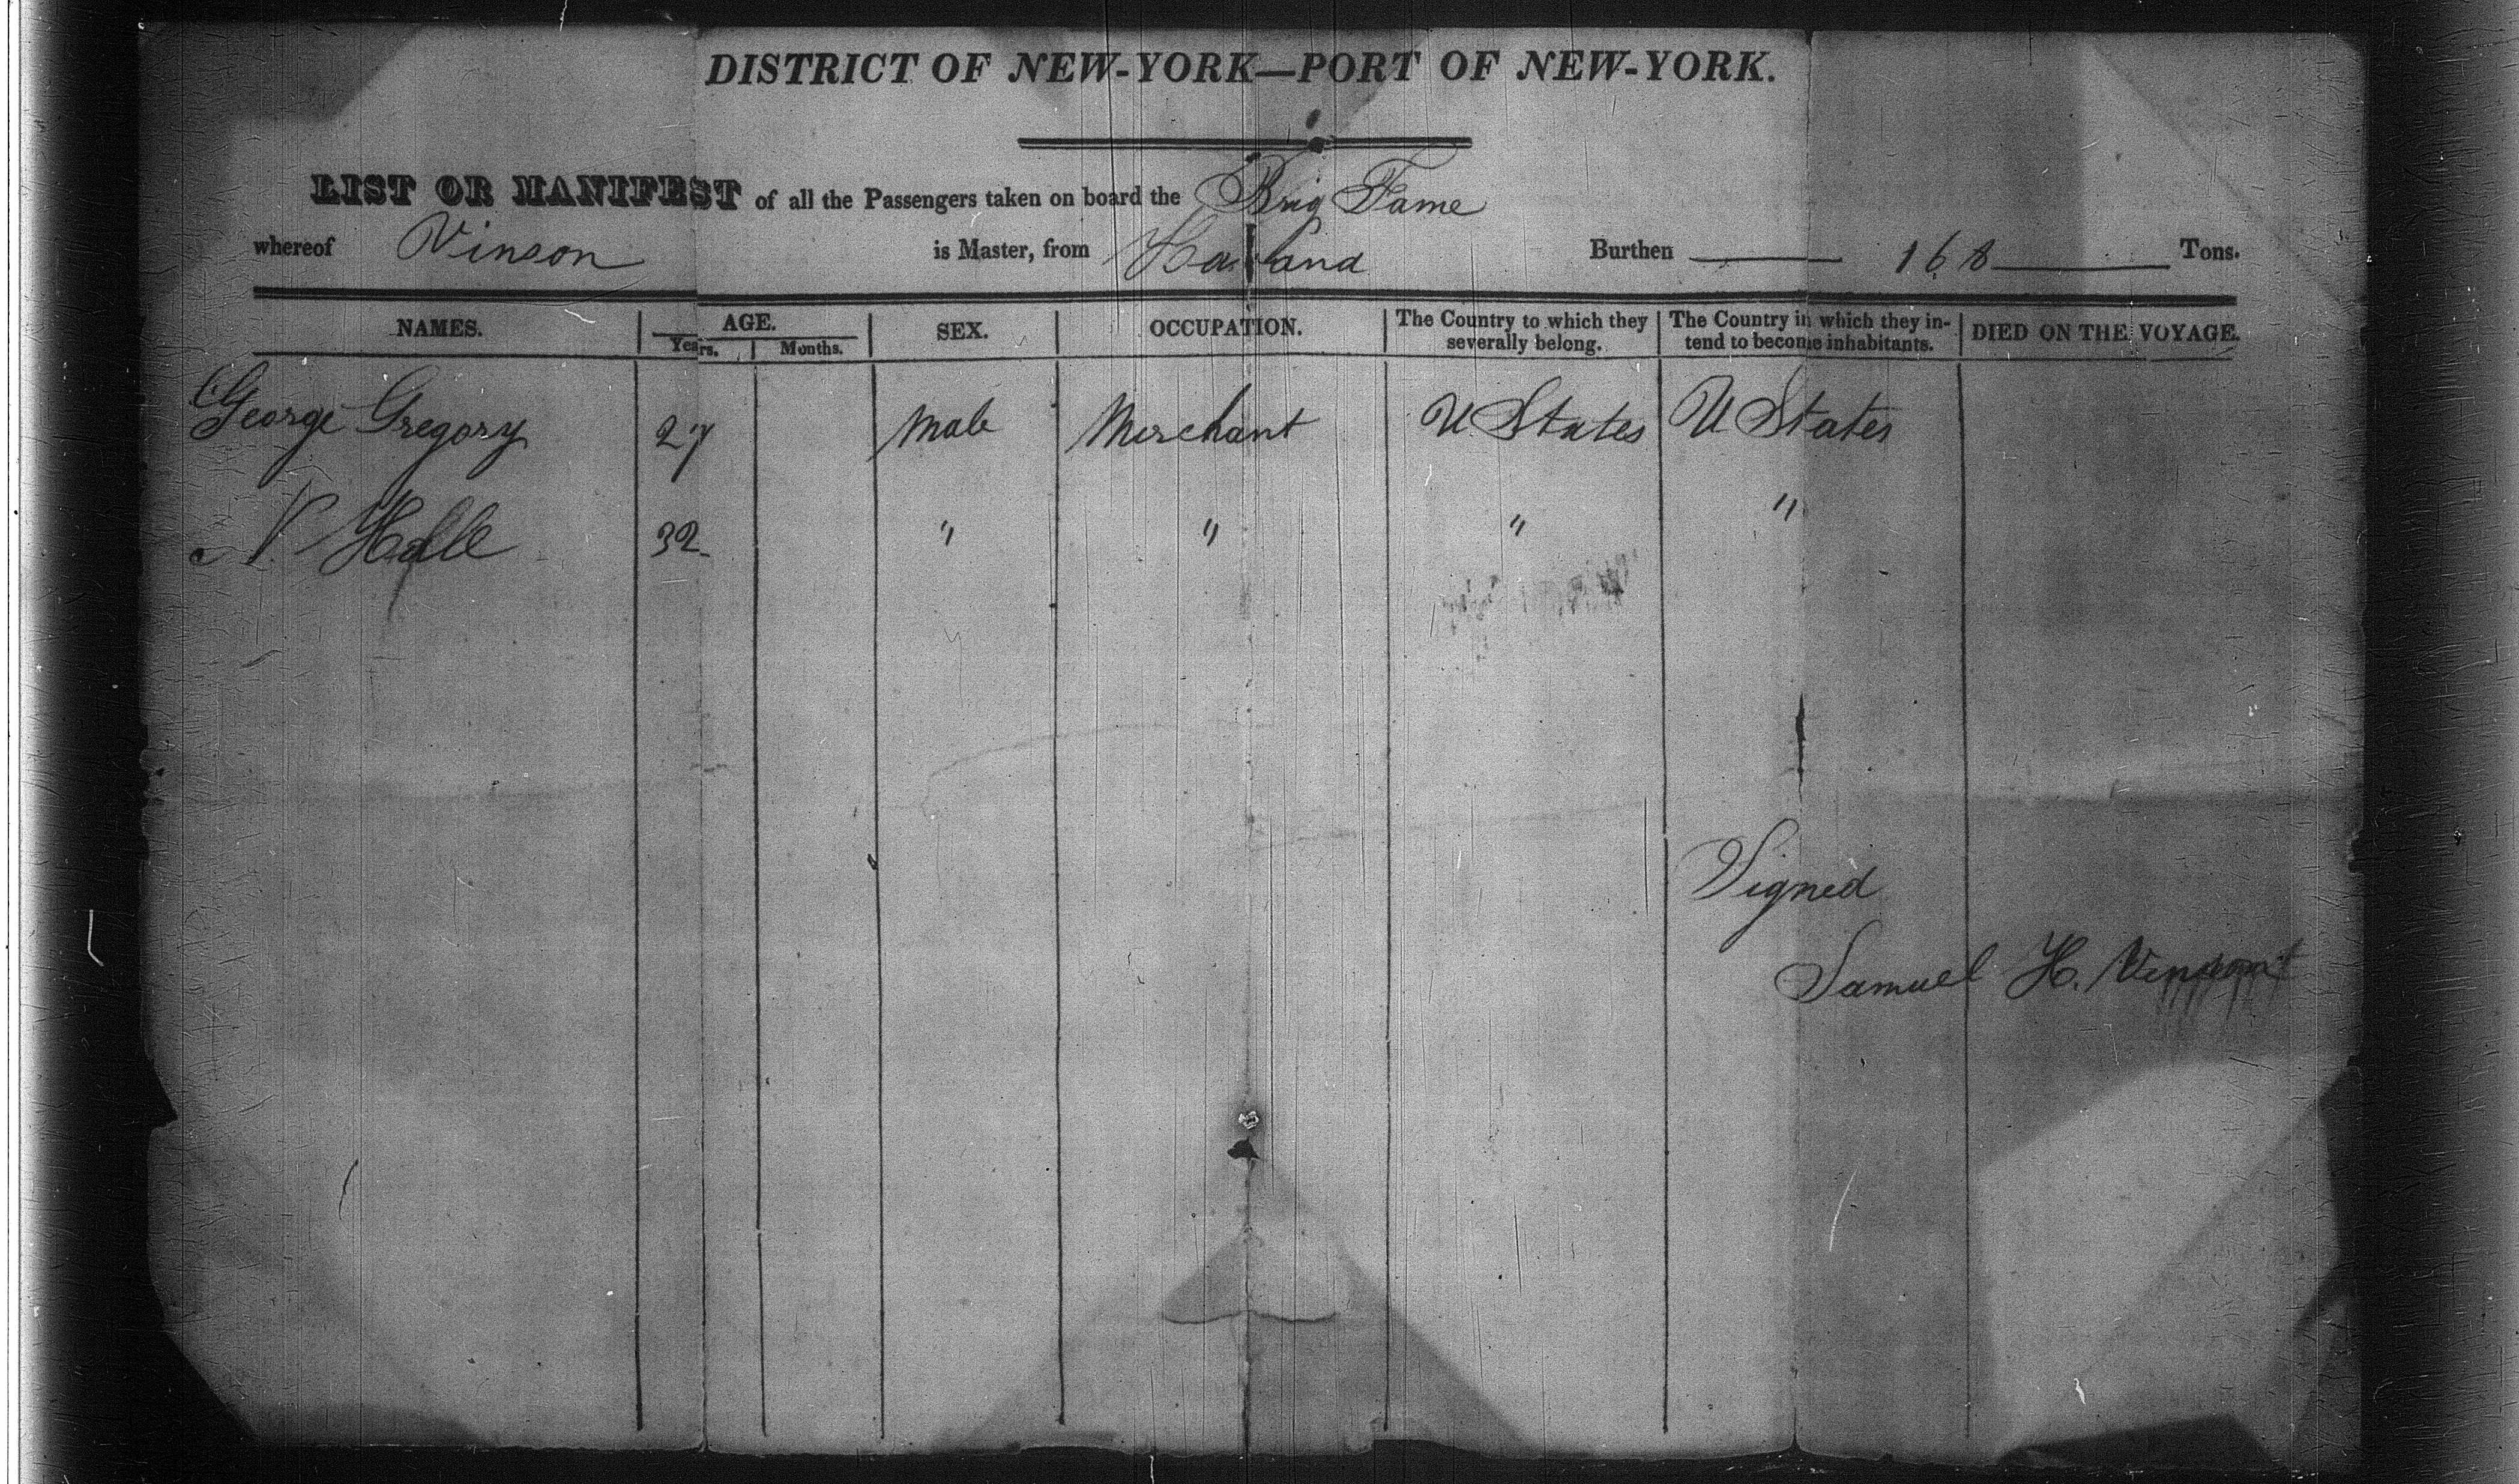 DISTRICT OF NEW-YORK—PORT OF NEW-YORK.
LIST OR MANIFEST of all the Passengers taken on board the Brig Fame
whereof Vinson is Master, from Burthen 168 Tons.
NAMES. AGE. SEX. OCCUPATION. The Country to which they severally belong. The Country in which they intend to become inhabitants. DIED ON THE VOYAGE.
Years. Months.
George Gregory 27 Male Merchant U States U States
N. 32 " " " "
Signed
Samuel H. Vinson